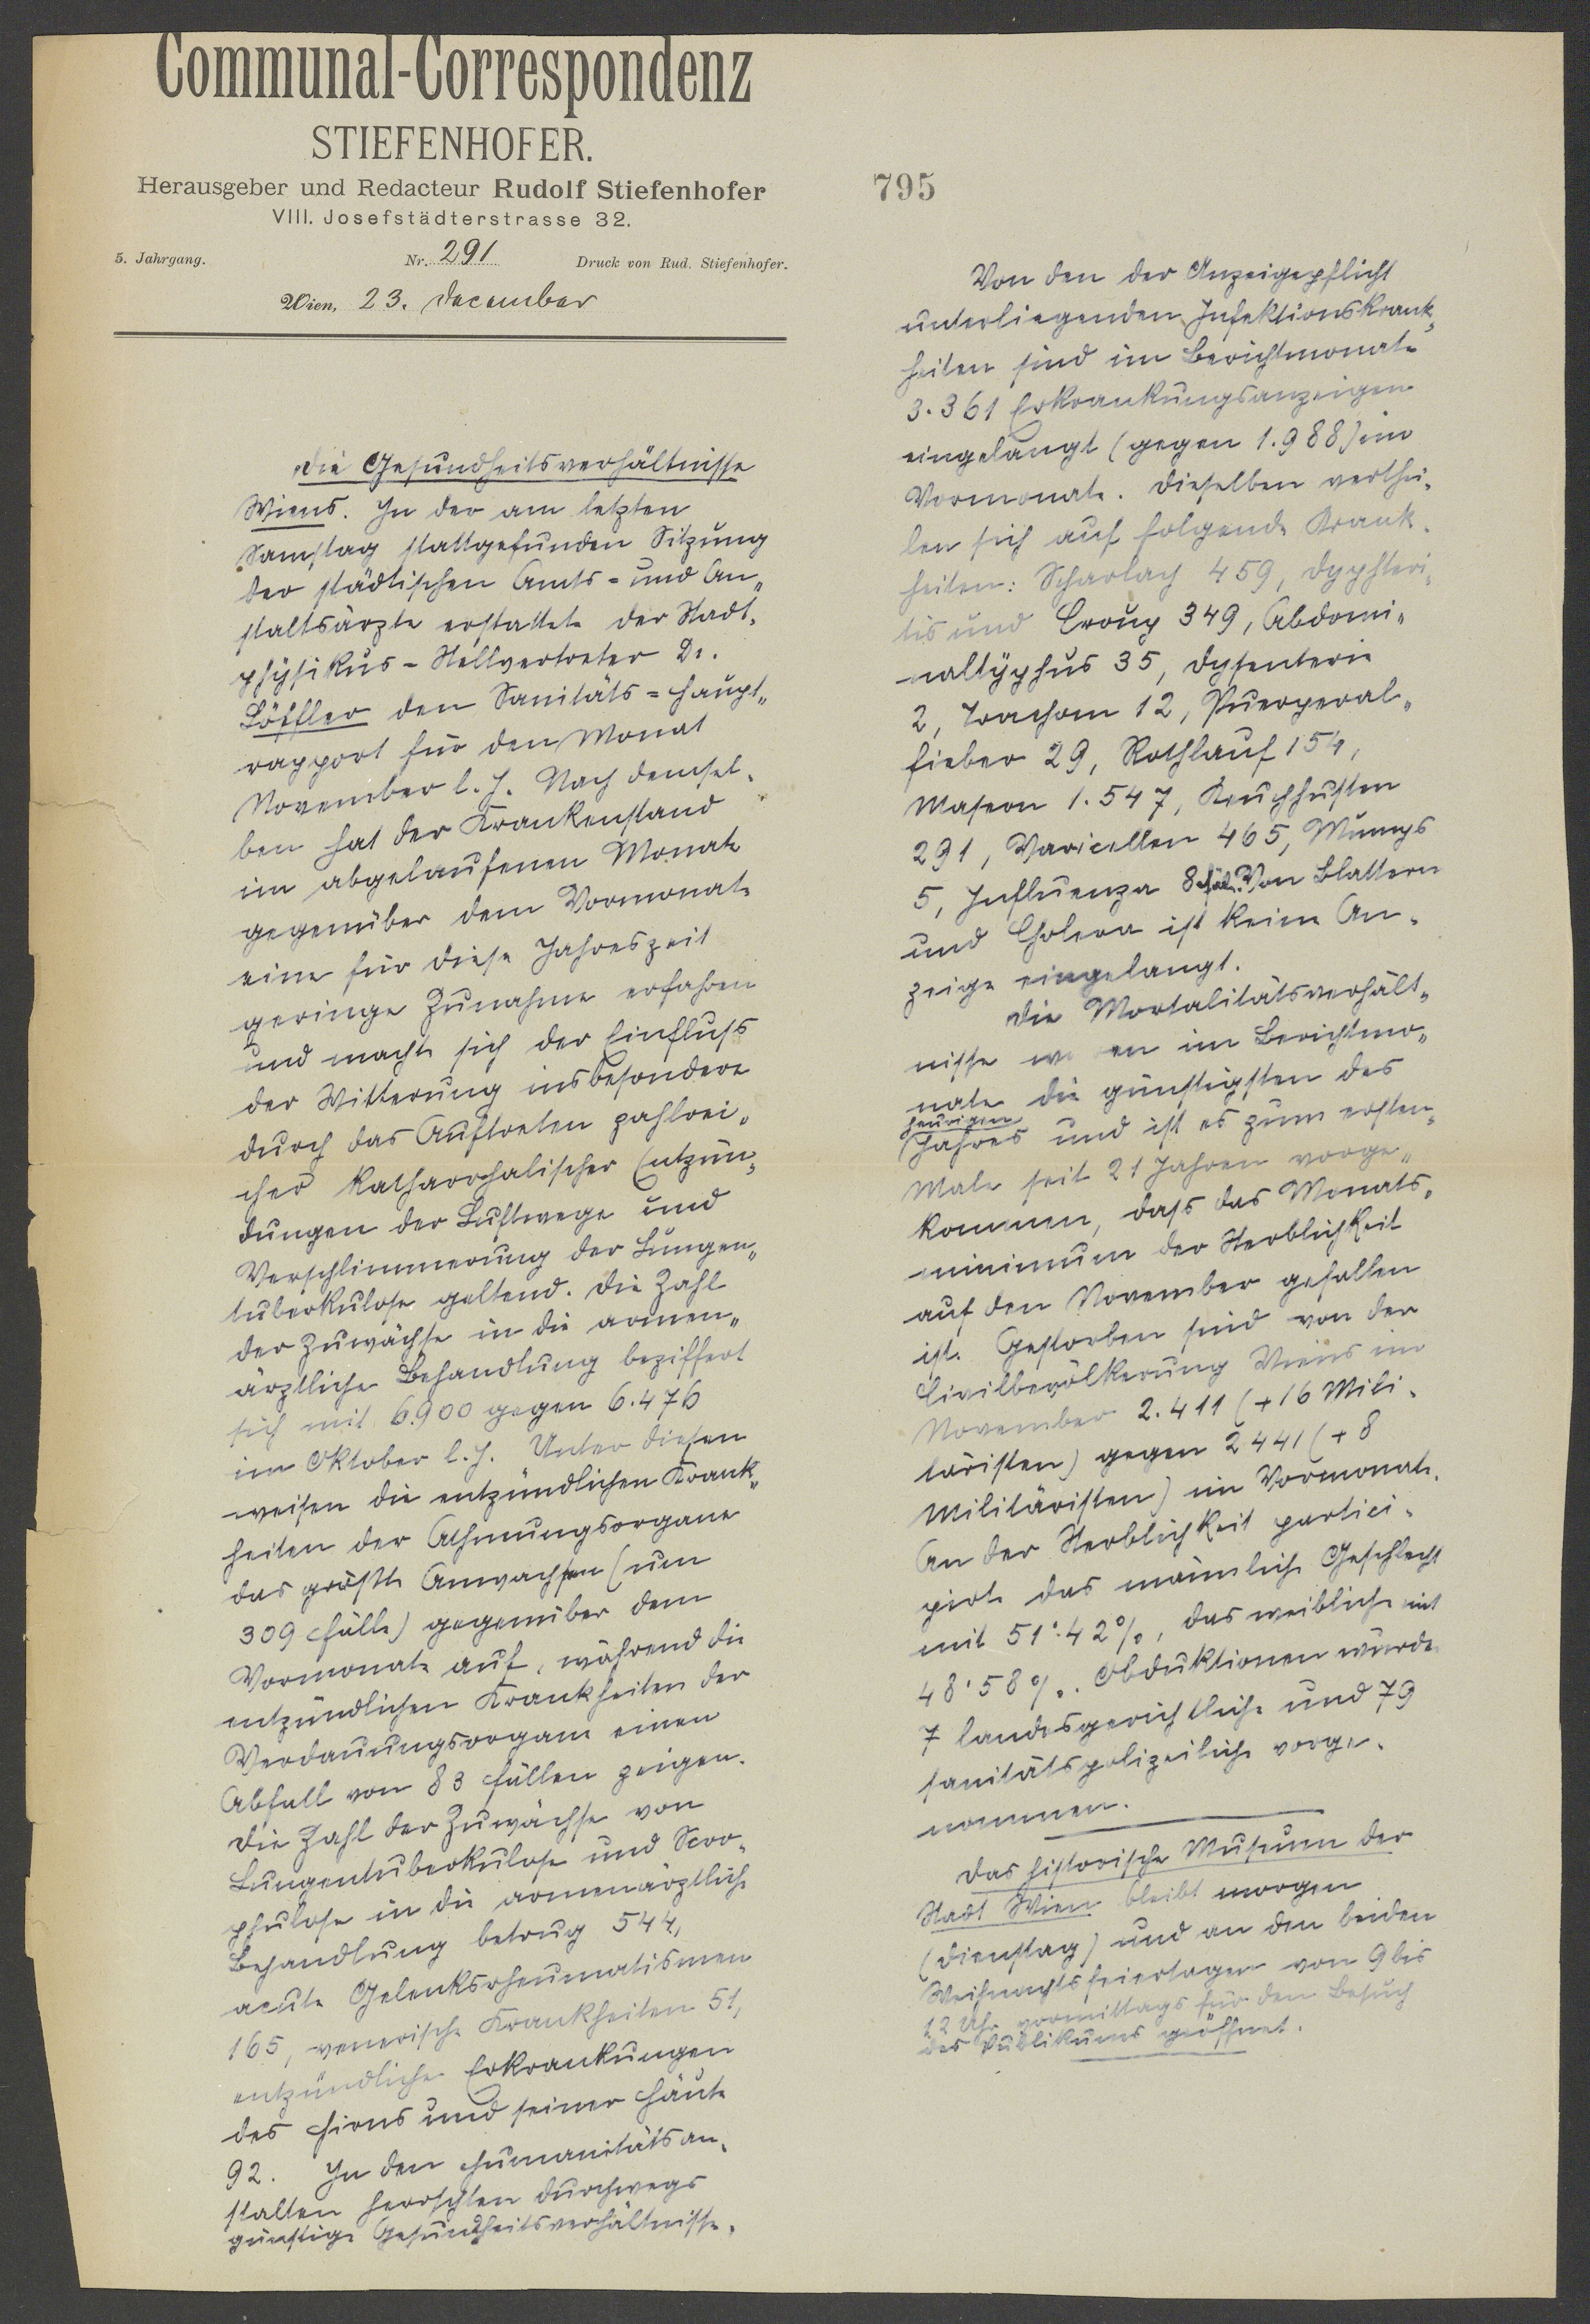 Communal-Correspondenz
STIEFENHOFER.
Herausgeber und Redacteur Rudolf Stiefenhofer
VIII. Josefstädterstrasse 32.
5. Jahrgang. Nr. 291 Druck von Rud. Stiefenhofer.
Wien, 23. December
Die Gesundheitsverhältnisse
Wiens. In der am letzten
Samstag stattgefunden Sitzung
der städtischen Amts- und An-
staltsärzte erstattete der Stadt-
physikus-Stellvertreter Dr.
Löffler den Sanitäts-Haupt-
rapport für den Monat
November l. J. Nach demsel-
ben hat der Krankenstand
im abgelaufenen Monate
gegenüber dem Vormonate
eine für diese Jahreszeit
geringe Zunahme erfahren
und machte sich der Einfluss
der Witterung insbesondere
durch das Auftreten zahlrei-
cher katharrhalischer Entzün-
dungen der Luftwege und
Verschlimmerung der Lungen-
tuberkulose geltend. Die Zahl
der Zuwächse in die armen-
ärztliche Behandlung beziffert
sich mit 6.900 gegen 6.476
im Oktober l. J. Unter diesen
weisen die entzündlichen Krank-
heiten der Athmungsorgane
das größte Anwachsen (um
309 Fälle) gegenüber dem
Vormonate auf, während die
entzündlichen Krankheiten der
Verdauungsorgane einen
Abfall von 83 Fällen zeigen.
Die Zahl der Zuwächse von
Lungentuberkulose und Scro-
phulose in die armenärztliche
Behandlung betrug 544,
acute Gelenksrheumatismen
165, venerische Krankheiten 51,
entzündliche Erkrankungen
des Hirns und seiner Häute
92. In den Humanitätsan-
stalten herrschten durchwegs
günstige Gesundheitsverhältnisse.
795
Von den der Anzeigepflicht
unterliegenden Infektionskrank-
heiten sind im Berichtmonate
3.361 Erkrankungsanzeigen
eingelangt (gegen 1.988) im
Vormonate. Dieselben verthei-
len sich auf folgende Krank-
heiten: Scharlach 459, Dyphteri-
tis und Croup 349, Abdomi-
naltyphus 35, Dysenterie
2, Trachom 12, Puerperal-
fieber 29, Rothlauf 154,
Masern 1.547, Keuchhusten
291, Varicellen 465, Mumps
5, Influenza 8 Fälle. Von Blattern
und Cholera ist keine An-
zeige eingelangt.
Die Mortalitätsverhält-
nisse waren im Berichtmo-
nate die günstigsten des
heurigen
Jahres und ist es zum ersten-
Male seit 21 Jahren vorge-
kommen, dass das Monats-
minimum der Sterblichkeit
auf den November gefallen
ist. Gestorben sind von der
Civilbevölkerung Wiens im
November 2.411 (+16 Mili-
täristen) gegen 2441 (+8
Militäristen) im Vormonate.
An der Sterblichkeit partici-
pirte das männliche Geschlecht
mit 51·42%, das weibliche mit
48·58%. Obduktionen wurde
7 landesgerichtliche und 79
sanitätspolizeiliche vorge-
nommen.
Das historische Museum der
Stadt Wien bleibt morgen
(Dienstag) und an den beiden
Weihnachtsfeiertagen von 9 bis
12 Uhr vormittags für den Besuch
des Publikums geöffnet.